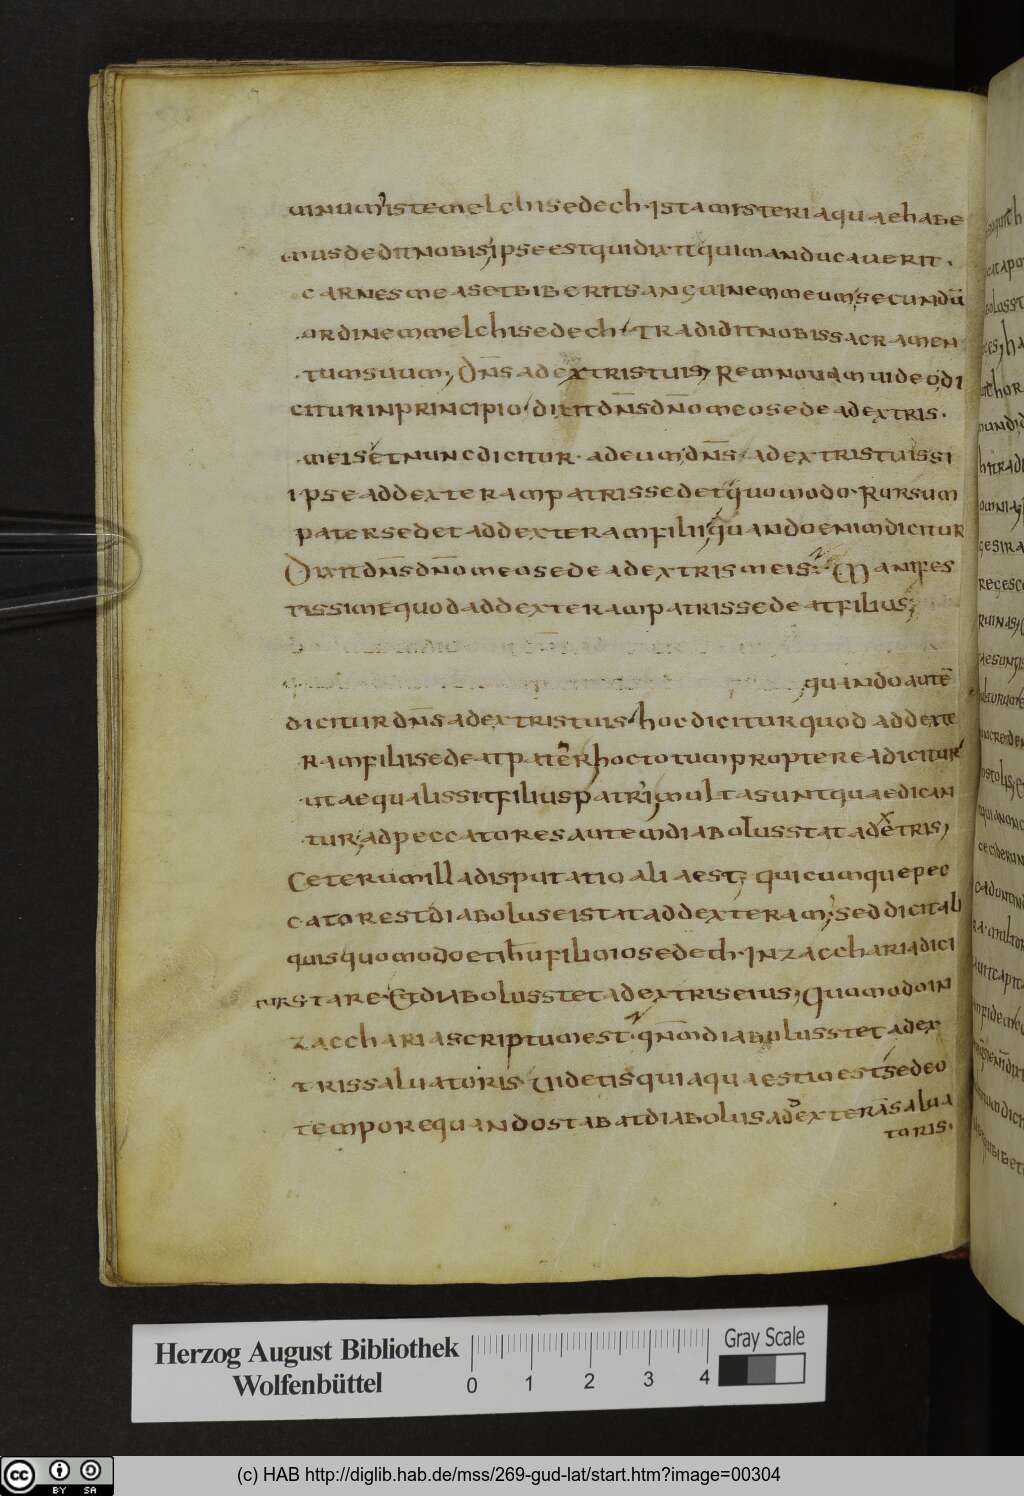 uinum; iste melchisedech. ista misteria quae habe
mus dedit nobis; ipse est qui dixit qui manducauerit.
carnes meas et biberit sanguinem meum; secundū
ordinem melchisedech. tradidit nobis sacramen
tum suum; Dn̄s ad extris tuis; Rem nouam uideo, di
citur in principio. dixit dn̄s dn̄o meo sede ad extris.
meis et nunc dicitur. ad eum; dn̄s ad extris tuis si
ipse ad dexteram patris sedet quomodo. Rursum
pater sedet ad dexteram filii; quando enim dicitur
Dixit dn̄s dn̄o meo sede ad extris meis; Manifes
tissime quod ad dexteram patris sedeat filius;
quando autē
dicitur dn̄s ad extris tuis. hoc dicitur quod ad dexte
ram filii sedeat pater hoc totum propterea dicitur
ut aequalis sit filius patri; multa sunt quae dican
tur; ad peccatores autem diabolus stat ad extris;
Ceterum illa disputatio alia est; quicumque pec
cator est diabolus ei stat ad dexteram; sed dicit ali
quis quomodo et ih̄u filio iosedech. In zaccharia dici
tur stare. Et diabolus stet ad extris eius; Quomodo in
zaccharia scriptum est. qn̄m diabolus stet ad ex
tris saluatoris Uidetis quia quaestio est sed eo
tempore quando stabat diabolus ad exterā salua
toris.
Herzog August Bibliothek
Wolfenbüttel
0 1 2 3 4
Gray Scale
cc BY SA
(c) HAB http://diglib.hab.de/mss/269-gud-lat/start.htm?image=00304